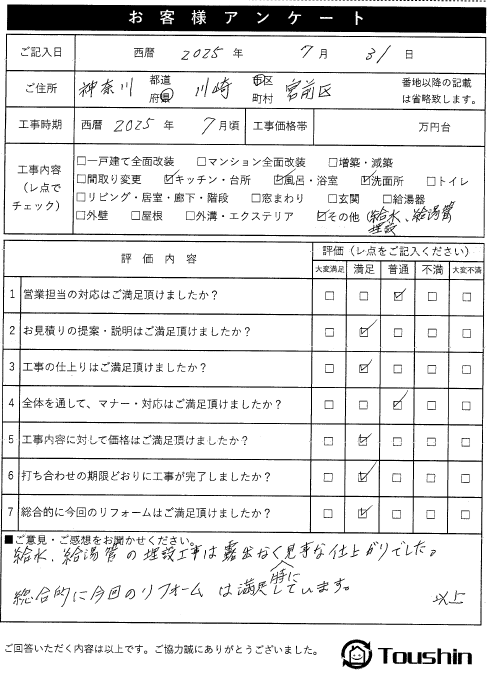 お客様アンケート
ご記入日 西暦 2025 年 7 月 31 日
ご住所 神奈川 都道府県 川崎 市区町村 宮前区 番地以降の記載は省略致します。
工事時期 西暦 2025 年 7 月頃 工事価格帯 万円台
工事内容（レ点でチェック）
□一戸建て全面改装 □マンション全面改装 □増築・減築
□間取り変更 ☑キッチン・台所 ☑風呂・浴室 ☑洗面所 □トイレ
□リビング・居室・廊下・階段 □窓まわり □玄関 □給湯器
□外壁 □屋根 □外溝・エクステリア ☑その他 (給水、給湯管
埋設
評価内容 評価（レ点をご記入ください）
大変満足 満足 普通 不満 大変不満
1 営業担当の対応はご満足頂けましたか？ □ □ ☑ □ □
2 お見積りの提案・説明はご満足頂けましたか？ □ ☑ □ □ □
3 工事の仕上りはご満足頂けましたか？ □ ☑ □ □ □
4 全体を通して、マナー・対応はご満足頂けましたか？ □ □ ☑ □ □
5 工事内容に対して価格はご満足頂けましたか？ □ ☑ □ □ □
6 打ち合わせの期限どおりに工事が完了しましたか？ □ ☑ □ □ □
7 総合的に今回のリフォームはご満足頂けましたか？ □ ☑ □ □ □
■ご意見・ご感想をお聞かせください。
給水、給湯管の埋設工事は露出なく見事な仕上がりでした。
特に
総合的に今回のリフォームは満足しています。
以上
ご回答いただく内容は以上です。ご協力誠にありがとうございました。
Toushin